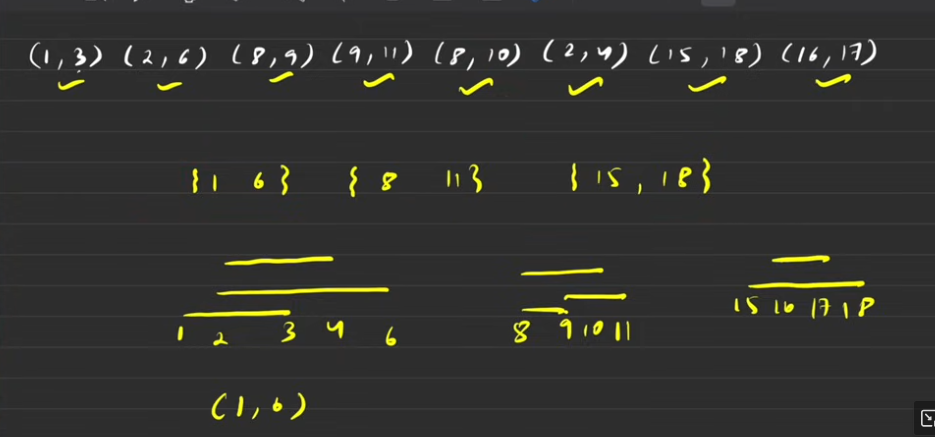 (1,3) (2,6) (8,9) (9,11) (8,10) (2,4) (15,18) (16,17)
{1 6} { 8 11} { 15, 18}
1 2 3 4 6 8 9 10 11 15 16 17 18
(1,6)